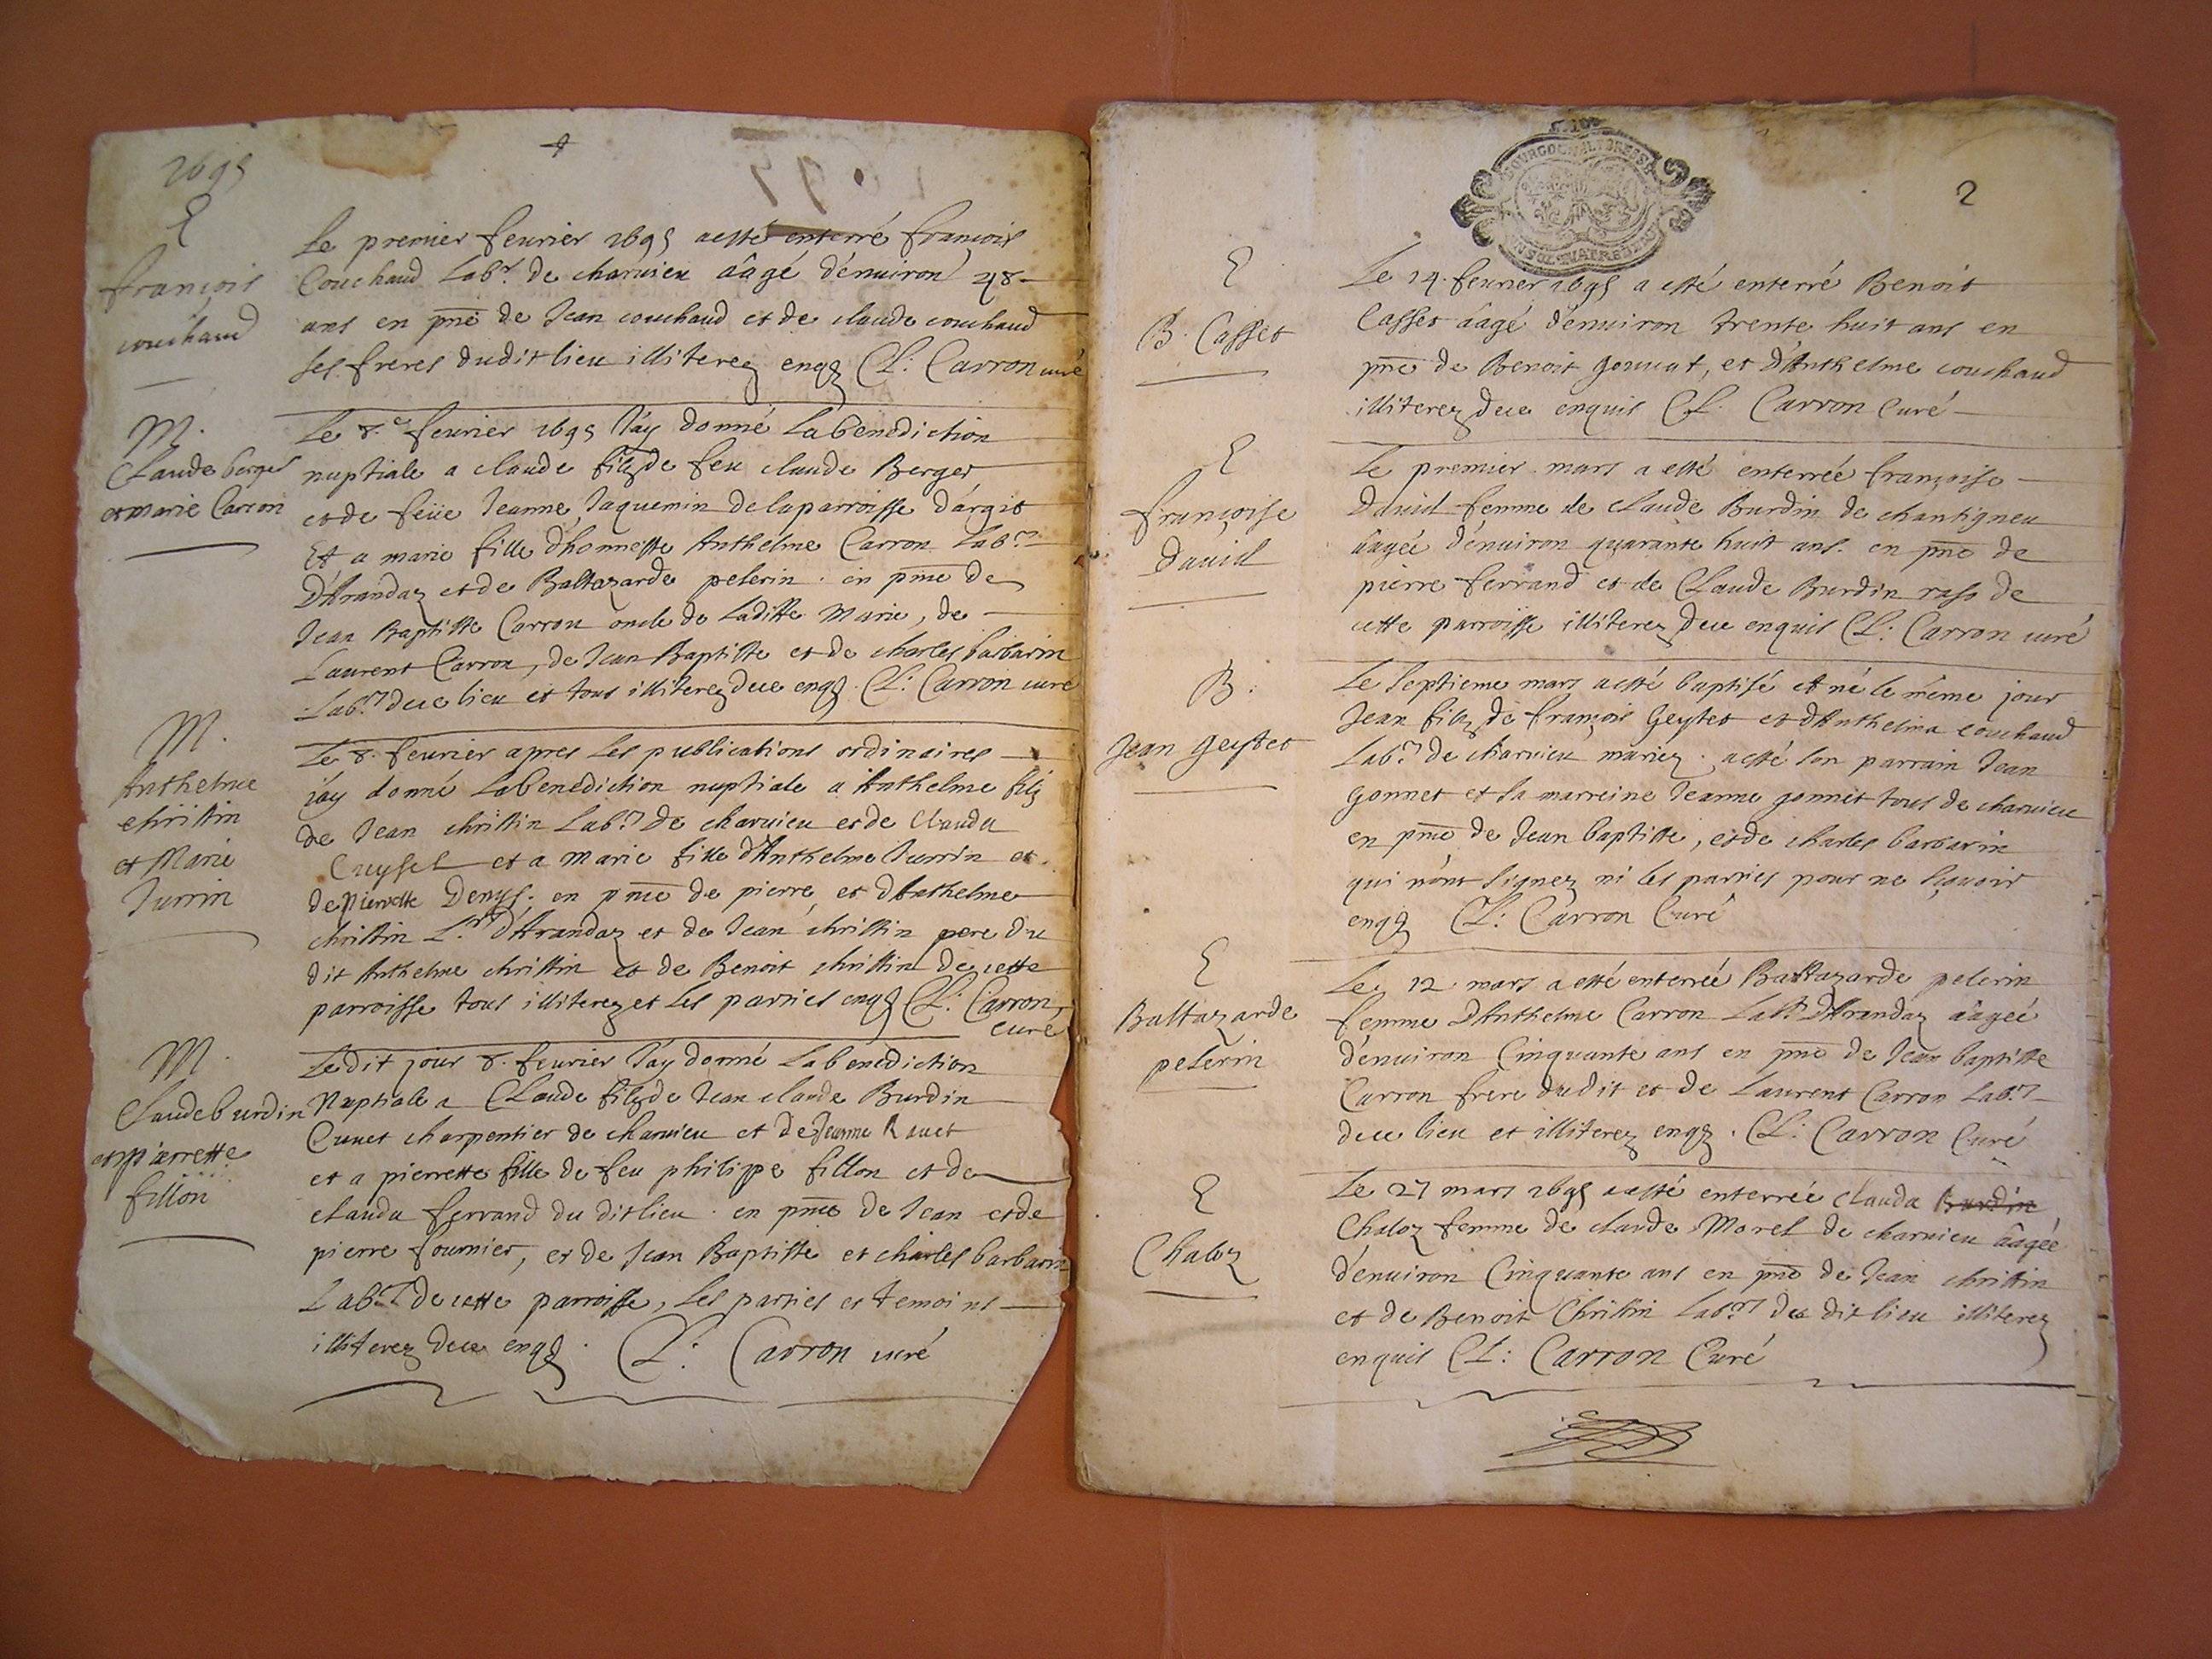 1695
E
François
couchaud
Le premier feurier 1695 a esté enterré françois
Couchaud Labr. de charuieu aâgé d'enuiron 48
ans en pnce de Jean couchaud et de claude couchaud
ses freres dudit lieu illiterez enqs Cl: Carron curé
M.
Claude berger
et marie Carron
Le 8.e feurier 1695 J'ay donné La benediction
nuptiale a claude filz de feu claude Berger
et de feüe Jeanne Jaquemin de la parroisse d'argit
Et a marie fille d'honneste Anthelme Carron Labr.
D'Arandaz et de Baltazarde pelerin. en pnce de
Jean Baptiste Carron oncle de Laditte Marie, de
Laurent Carron, de Jean Baptiste et de charles barbarin
Labrs. de ce lieu et tous illiterez de ce enqs. Cl: Carron curé
M.
Anthelme
christin
et Marie
Jurrin
Le 8. feurier apres les publications ordinaires
j'ay donné La benediction nuptiale a Anthelme filz
de Jean christin Labr. De charuieu et de Clauda
Cuysel et a marie fille d'Anthelme Jurrin et
de pierrette Denys. en pnce de pierre, et d'Anthelme
christin L.rs d'Arandaz et de Jean christin pere du
dit Anthelme christin et de Benoit christin de cette
parroisse tous illiterez et Les parties enqs Cl: Carron
curé
M.
Claude burdin
et pierrette
fillon
Le dit jour 8. feurier J'ay donné La benediction
Nuptiale a Claude filz de Jean claude Burdin
Cunet charpentier de charuieu et de Jeanne Rauet
et a pierrette fille de feu philippe fillon et de
clauda ferrand du dit lieu. en pnce de Jean et de
pierre fournier, et de Jean Baptiste et charles barbarin
Labrs. de cette parroisse, Les parties et temoins
illiterez de ce enqs. Cl: Carron curé
2
BOURGOGNE ET BRESSE
E
B. Casset
Le 14. feurier 1695 a esté enterré Benoit
Casset aâgé d'enuiron trente huit ans en
pnce de Benoit gonnet, et d'Anthelme couchaud
illiterez de ce enquis Cl. Carron Curé
E
françoise
Dauid
Le premier mars a esté enterrée françoise
Dauid femme de claude Burdin de chantigneu
aâgée d'enuiron quarante huit ans. en pnce de
pierre ferrand et de Claude Burdin de
cette parroisse illiterez de ce enquis Cl: Carron curé
B.
Jean geytet
Le Septieme mars a esté baptisé et né le même jour
Jean filz de françois Geytet et d'Anthelma couchaud
Labrs. de charuieu mariez. a esté son parrain Jean
Gonnet et sa marreine Jeanne gonnet tous de charuieu
en pnce de Jean baptiste, et de charles barbarin
qui n'ont signez ni les parties pour ne sçauoir
enqs Cl: Carron Curé
E
Baltazarde
pelerin
Le 12 mars a esté enterrée Baltazarde pelerin
femme d'Anthelme Carron Labr. d'Arandaz aâgée
d'enuiron Cinquante ans en pnce de Jean baptiste
Carron frere dudit et de Laurent Carron Labrs.
de ce lieu et illiterez enqs. Cl: Carron Curé
E
Chaloz
Le 27 mars 1695 a esté enterrée Clauda Burdin
Chaloz femme de claude Morel de charuieu aâgée
d'enuiron Cinquante ans en pnce de Jean christin
et de Benoit Christin Labrs du dit lieu illiterez
enquis Cl: Carron Curé